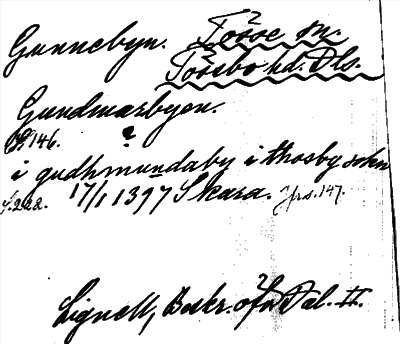 Gunnebyn. Tösse sn.
Tössbo hd. Dls.
Gundmarbyen.
146. ?
i gudhmundaby i thosby sokn
s. 228. 17/1 1397 Skara. Jfs. 147.
Lignell, Beskr. ofv. Dal. II.